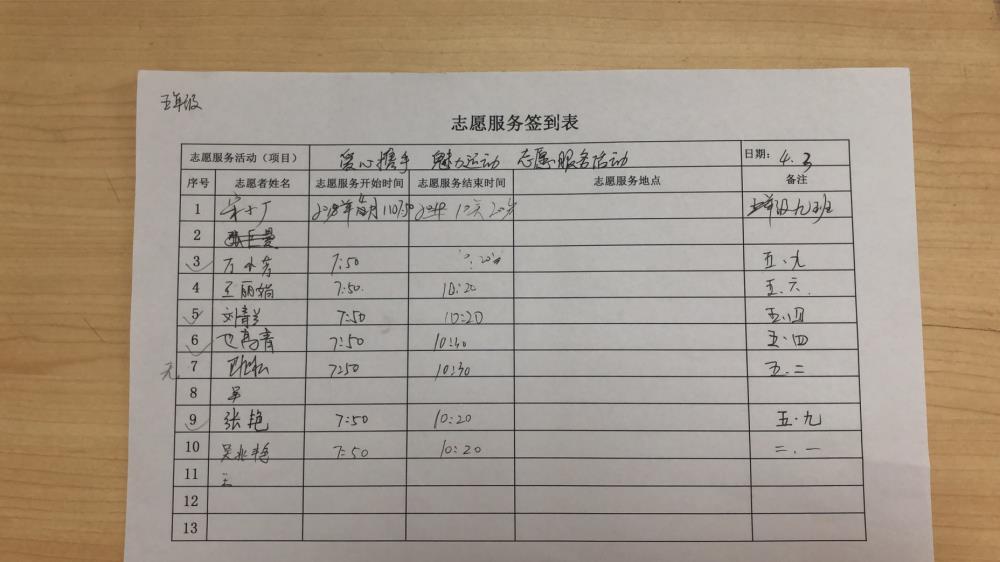 五年级
志愿服务签到表
志愿服务活动（项目） 爱心携手 魅力运动 志愿服务活动 日期： 4.3
序号 志愿者姓名 志愿服务开始时间 志愿服务结束时间 志愿服务地点 备注
1 九班
2
3 7:50 五.九
4 王丽娟 7:50. 10:20 五.六.
5 刘清兰 7:50 10:20 五.四
6 7:50 10:40 五.四
无 7 7:50 10:30 五.二
8
9 张艳 7:50 10:20 五.九
10 7:50 10:20 二.一
11 王
12
13